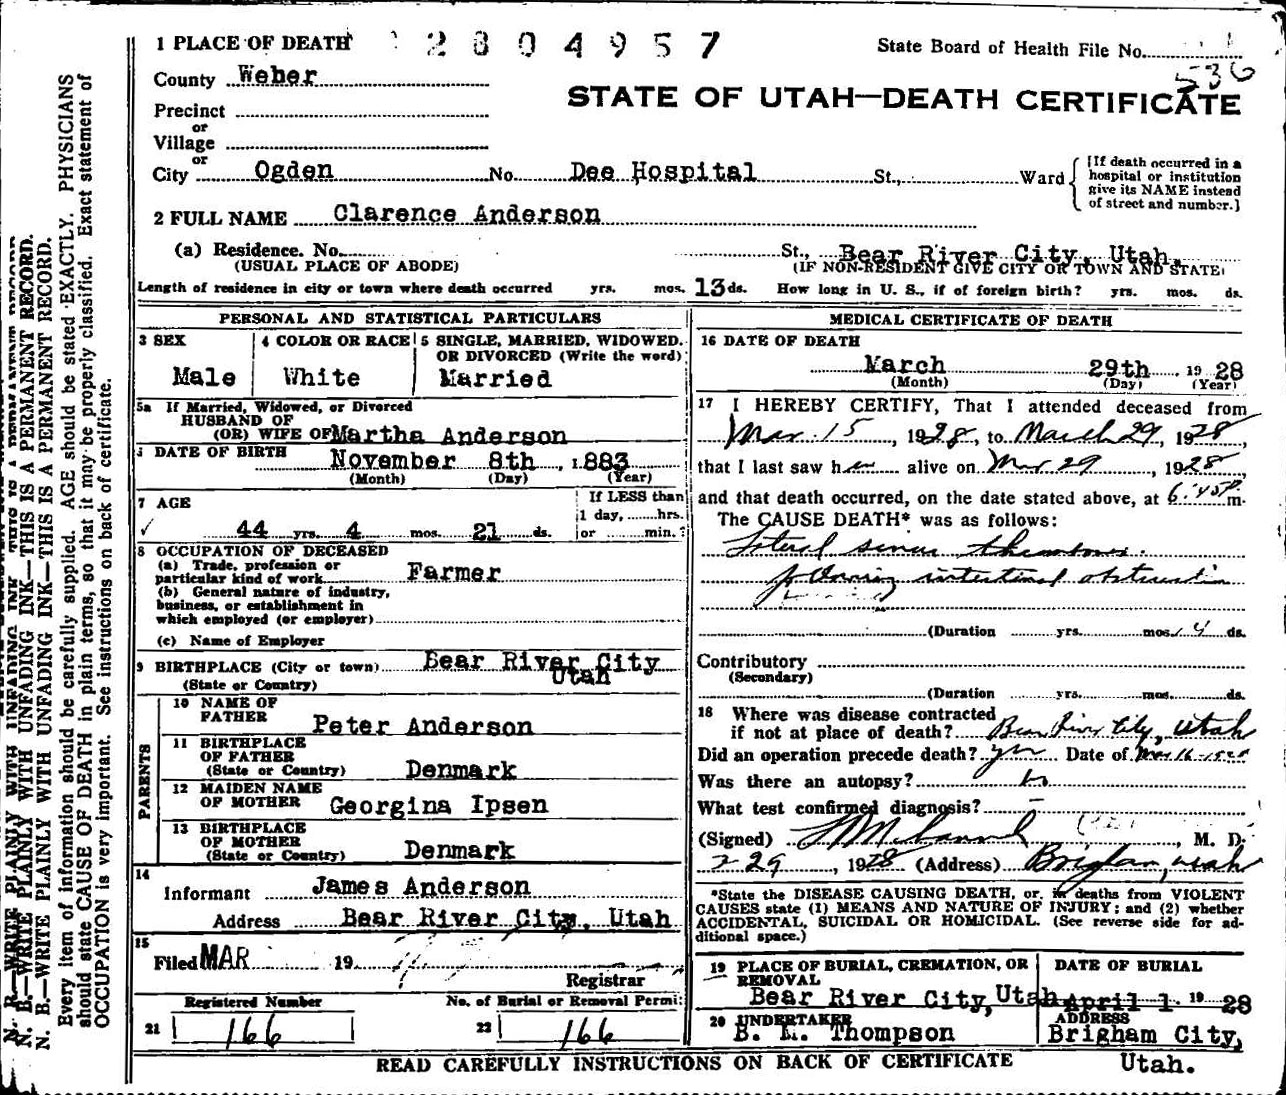 1 PLACE OF DEATH 2804957 State Board of Health File No. 536
County Weber
STATE OF UTAH—DEATH CERTIFICATE
Precinct
or
Village
or
City Ogden No. Dee Hospital St., Ward
[If death occurred in a
hospital or institution
give its NAME instead
of street and number.]
2 FULL NAME Clarence Anderson
(a) Residence. No. St., Bear River City, Utah.
(USUAL PLACE OF ABODE) (IF NON-RESIDENT GIVE CITY OR TOWN AND STATE)
Length of residence in city or town where death occurred yrs. mos. 13 ds. How long in U. S., if of foreign birth? yrs. mos. ds.
PERSONAL AND STATISTICAL PARTICULARS
3 SEX
Male
4 COLOR OR RACE
White
5 SINGLE, MARRIED, WIDOWED.
OR DIVORCED (Write the word)
Married
5a If Married, Widowed, or Divorced
HUSBAND OF
(OR) WIFE OF Martha Anderson
DATE OF BIRTH November 8th, 1883
(Month) (Day) (Year)
7 AGE
If LESS than
1 day, hrs.
or min.?
✓ 44 yrs. 4 mos. 21 ds.
8 OCCUPATION OF DECEASED
(a) Trade, profession or
particular kind of work Farmer
(b) General nature of industry,
business, or establishment in
which employed (or employer)
(c) Name of Employer
9 BIRTHPLACE (City or town) Bear River City
(State or Country) Utah
PARENTS
10 NAME OF
FATHER Peter Anderson
11 BIRTHPLACE
OF FATHER
(State or Country) Denmark
12 MAIDEN NAME
OF MOTHER Georgina Ipsen
13 BIRTHPLACE
OF MOTHER
(State or Country) Denmark
14
Informant James Anderson
Address Bear River City, Utah
15
Filed MAR 19
Registrar
Registered Number
21 166
No. of Burial or Removal Permit
22 166
MEDICAL CERTIFICATE OF DEATH
16 DATE OF DEATH
March 29th, 1928
(Month) (Day) (Year)
17 I HEREBY CERTIFY, That I attended deceased from
Mar. 15, 1928, to March 29, 1928,
that I last saw him alive on Mar 29, 1928,
and that death occurred, on the date stated above, at 6:45 P m.
The CAUSE DEATH* was as follows:
Lateral sinus thrombosis.
following intestinal obstruction
(Duration yrs. mos. 4 ds.
Contributory
(Secondary)
(Duration yrs. mos. ds.
18 Where was disease contracted
if not at place of death? Bear River City, Utah
Did an operation precede death? yes Date of Mar 16-1928
Was there an autopsy? no
What test confirmed diagnosis? —
(Signed) M. D.
29, 1928 (Address) Brigham, Utah
*State the DISEASE CAUSING DEATH, or, in deaths from VIOLENT
CAUSES state (1) MEANS AND NATURE OF INJURY; and (2) whether
ACCIDENTAL, SUICIDAL OR HOMICIDAL. (See reverse side for ad-
ditional space.)
19 PLACE OF BURIAL, CREMATION, OR
REMOVAL
Bear River City, Utah
DATE OF BURIAL
April 1 1928
20 UNDERTAKER
Thompson
ADDRESS
Brigham City,
Utah.
READ CAREFULLY INSTRUCTIONS ON BACK OF CERTIFICATE
N. B.—WRITE PLAINLY WITH UNFADING INK—THIS IS A PERMANENT RECORD.
N. B.—WRITE PLAINLY WITH UNFADING INK—THIS IS A PERMANENT RECORD.
Every item of information should be carefully supplied. AGE should be stated EXACTLY. PHYSICIANS
should state CAUSE OF DEATH in plain terms, so that it may be properly classified. Exact statement of
OCCUPATION is very important. See instructions on back of certificate.